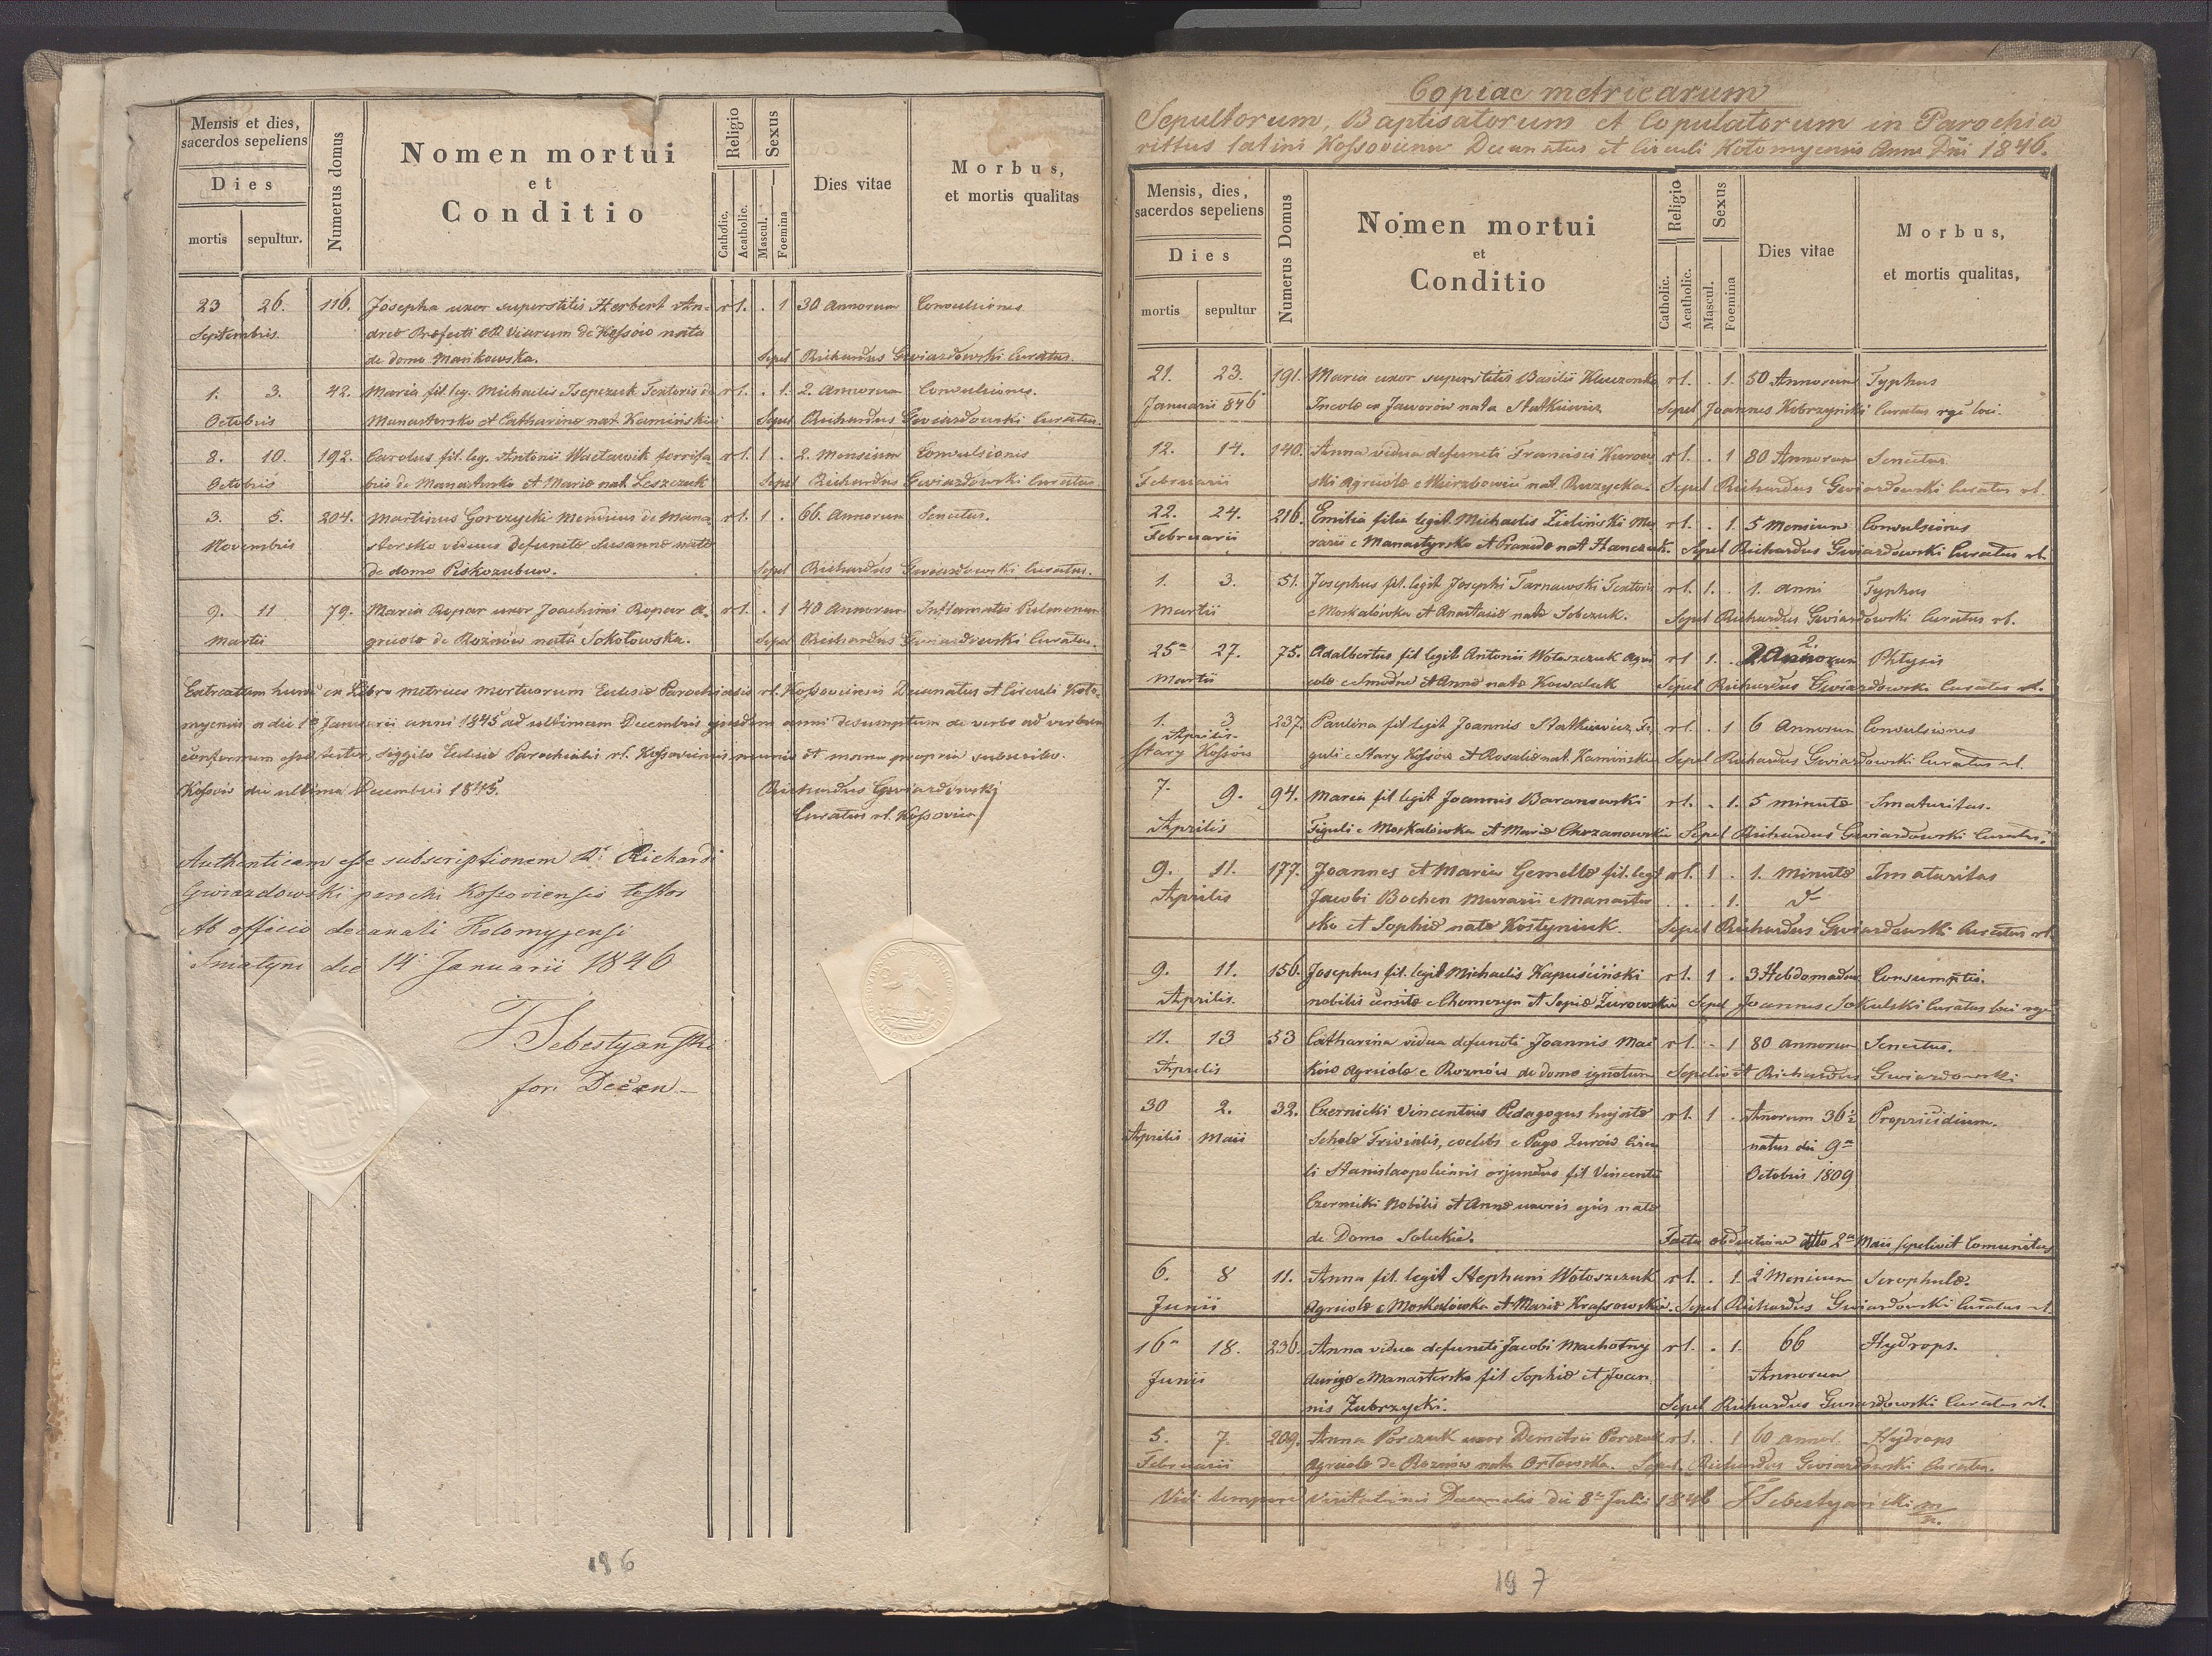 Mensis et dies,
sacerdos sepeliens
Dies
mortis sepultur.
Numerus domus
Nomen mortui
et
Conditio
Religio
Catholic.
Acatholic.
Sexus
Mascul.
Foemina
Dies vitae
Morbus,
et mortis qualitas
23 26. 116. Josepha uxor superstitis Herbert An- rl. . 1 30 Annorum Convulsiones
Septembris. dreæ Præfecti Viarum de Kossów nata
de domo Mańkowska. Sepel Richardus Gwiazdowski Curatus.
1. 3. 42. Maria fil. leg. Michaelis Isepczuk Textoris de rl. . 1. 2. Annorum Convulsiones.
Octobris Manastersko et Catharinæ nat. Kamińskie Sepel Richardus Gwiazdowski Curatus.
8. 10. 192. Carolus fil. leg. Antonii Wacławik ferrifa rl. 1 . 2. Mensium Convulsionis
Octobris bri de Manastersko et Mariæ nat. Leszczuk Sepel Richardus Gwiazdowski Curatus.
3. 5. 204. Martinus Gorzycki Mendicus de Mana rl. 1 . 66. Annorum Senectus.
Novembris stersko viduus defunctæ Susannæ natæ
de domo Piskozubow. Sepel Richardus Gwiazdowski Curatus.
9. 11 79. Maria Ropar uxor Joachimi Ropar A- rl. . 1 40 Annorum Inflamatio Pulmonum
Martii gricolæ de Rożnów nata Sokołowska. Sepel Richardus Gwiazdowski Curatus.
Extractum hunc ex Libro metrices mortuorum Ecclesiæ Parochialis rl. Kossoviensis Decanatus et Circuli Koło-
myensis a die 1a Januarii anni 1845 ad ultimam Decembris ejusdem anni desumptum de verbo ad verbum
conformem esse testor, siggilo Ecclesiæ Parochialis rl. Kossoviensis munio et manu propria subscribo.
Kossów die ultima Decembris 1845. Richardus Gwiazdowski
Curatus rl. Kossovien
Authenticam esse subscriptionem Richardi
Gwiazdowski parochi Kossoviensis testor
Ab officio decanali Kolomyjensi
Sniatyni die 14 Januarii 1846
for. Decan
196
Copiae metricarum
Sepultorum, Baptisatorum et Copulatorum in Parochia
rittus latini Kossoviena Decanatus et Circuli Kołomyensis Anno Dni 1846.
Mensis, dies,
sacerdos sepeliens
Dies
mortis sepultur
Numerus Domus
Nomen mortui
et
Conditio
Religio
Catholic.
Acatholic.
Sexus
Mascul.
Foemina
Dies vitae
Morbus,
et mortis qualitas,
21. 23. 191. Maria uxor superstitis Basilii Kluczenko rl. . 1. 50 Annorum Typhus
Januarii 846 Incolæ ex Jaworów nata Statkiewicz Sepel Joannes Kobrzyński Curatus loci.
12. 14. 140. Anna vidua defuncti Francisci Kurow rl. . 1 80 Annorum Senectus
Februarii ski Agricolæ e Wierzbowiec nat. Ruzycka. Sepel Richardus Gwiazdowski Curatus rl.
22. 24. 216. Emilia filia legit. Michaelis Zieliński Mu rl. . 1. 5 Mensium Convulsiones
Februarii rarii e Manastyrsko et nat Hanczuk. Sepel Richardus Gwiazdowski Curatus rl.
1. 3. 51. Josephus fil. legit Josephi Tarnawski Textoris rl. 1. . 1. anni Typhus
Martii e Moskalówka et Anastasiæ natæ Sobczuk. Sepel Richardus Gwiazdowski Curatus rl.
25a 27. 75. Adalbertus fil legit Antonii Wołoszczuk Agri rl 1. . 2. Annorum Phtysis
Martii colæ e Smodne et Annæ natæ Kowaluk Sepel Richardus Gwiazdowski Curatus rl.
1. 3 237. Paulina fil legit Joannis Statkiewicz Fi rl. . 1 6 Annorum Convulsiones
Aprilis.
Stary Kossów guli e Stary Kossów et Rosaliæ nat. Kamińskie Sepel Richardus Gwiazdowski Curatus rl.
7. 9. 94. Maria fil legit Joannis Baranowski rl. . 1. 5 minutæ Imaturitas.
Aprilis Figuli e Moskalówka et Mariæ Chrzanowskie Sepel Richardus Gwiazdowski Curatus.
9. 11. 177. Joannes et Maria Gemellæ fil. legit rl. 1 . 1. minutæ Imaturitas
Aprilis Jacobi Bochen Murarii e Manaster . . . 1.
sko et Sophiæ natæ Kostyniuk Sepel Richardus Gwiazdowski Curatus rl.
9. 11. 156. Josephus fil. legit Michaelis Kapuściński rl. 1 . 3 Hebdomadas Consumptio.
Aprilis. nobilis e Chomczyn et Zurowskie Sepel Joannes Sokulski Curatus loci
11. 13 53 Catharina vidua defuncti Joannis Mai rl. . 1 80 annorum Senectus.
Aprilis ków Agricolæ e Roznów de domo ignotum Sepelivit Richardus Gwiazdowski
30 2. 32. Czernicki Vincentius Pedagogus hujatæ rl. 1 . Annorum 36½ Propriicidium.
Aprilis Maii Scholæ Trivialis, coelebs e Pago Zurów Circu natus die 9a
li Stanislaopoliensis orjundus fil Vincentii Octobris 1809
Czernicki Nobilis et Annæ uxoris ejus natæ
de Domo Saluckie. Facta obductione dtto 2a Maii sepelivit Comunitas
6. 8 11. Anna fil. legit Stephani Wołoszczuk rl. . 1. 2 Mensium Scrophulæ.
Junii Agricolæ e Moskalówka et Mariæ Krassowskie. Sepel Richardus Gwiazdowski Curatus rl.
16a 18. 236. Anna vidua defuncti Jacobi Machotny rl. . 1. 66 Hydrops.
Junii Aurigæ e Manastersko fil Sophiæ et Joan Annorum
nis Zubrzycki. Sepel Richardus Gwiazdowski Curatus rl.
5. 7. 209. Anna Porczuk uxor Demitrii Porczuk rl. . 1 60 annor. Hydrops
Februarii Agricolæ de Roznow nata Orłowska. Sepel. Richardus Gwiazdowski Curatus.
Vidi tempore Visitationis Decanalis die 8a Julii 1846
197